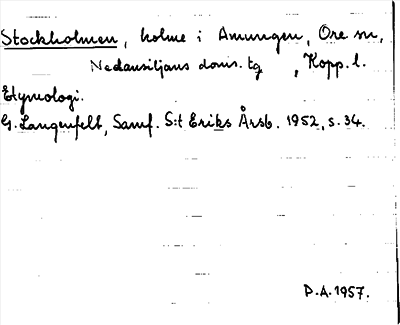 Stockholmen, holme i Amungen, Ore sn,
Nedansiljans doms. tg, Kopp. l.
Etymologi.
G. Langenfelt, Samf. S:t Eriks Årsb. 1952, s. 34.
P.A. 1957.